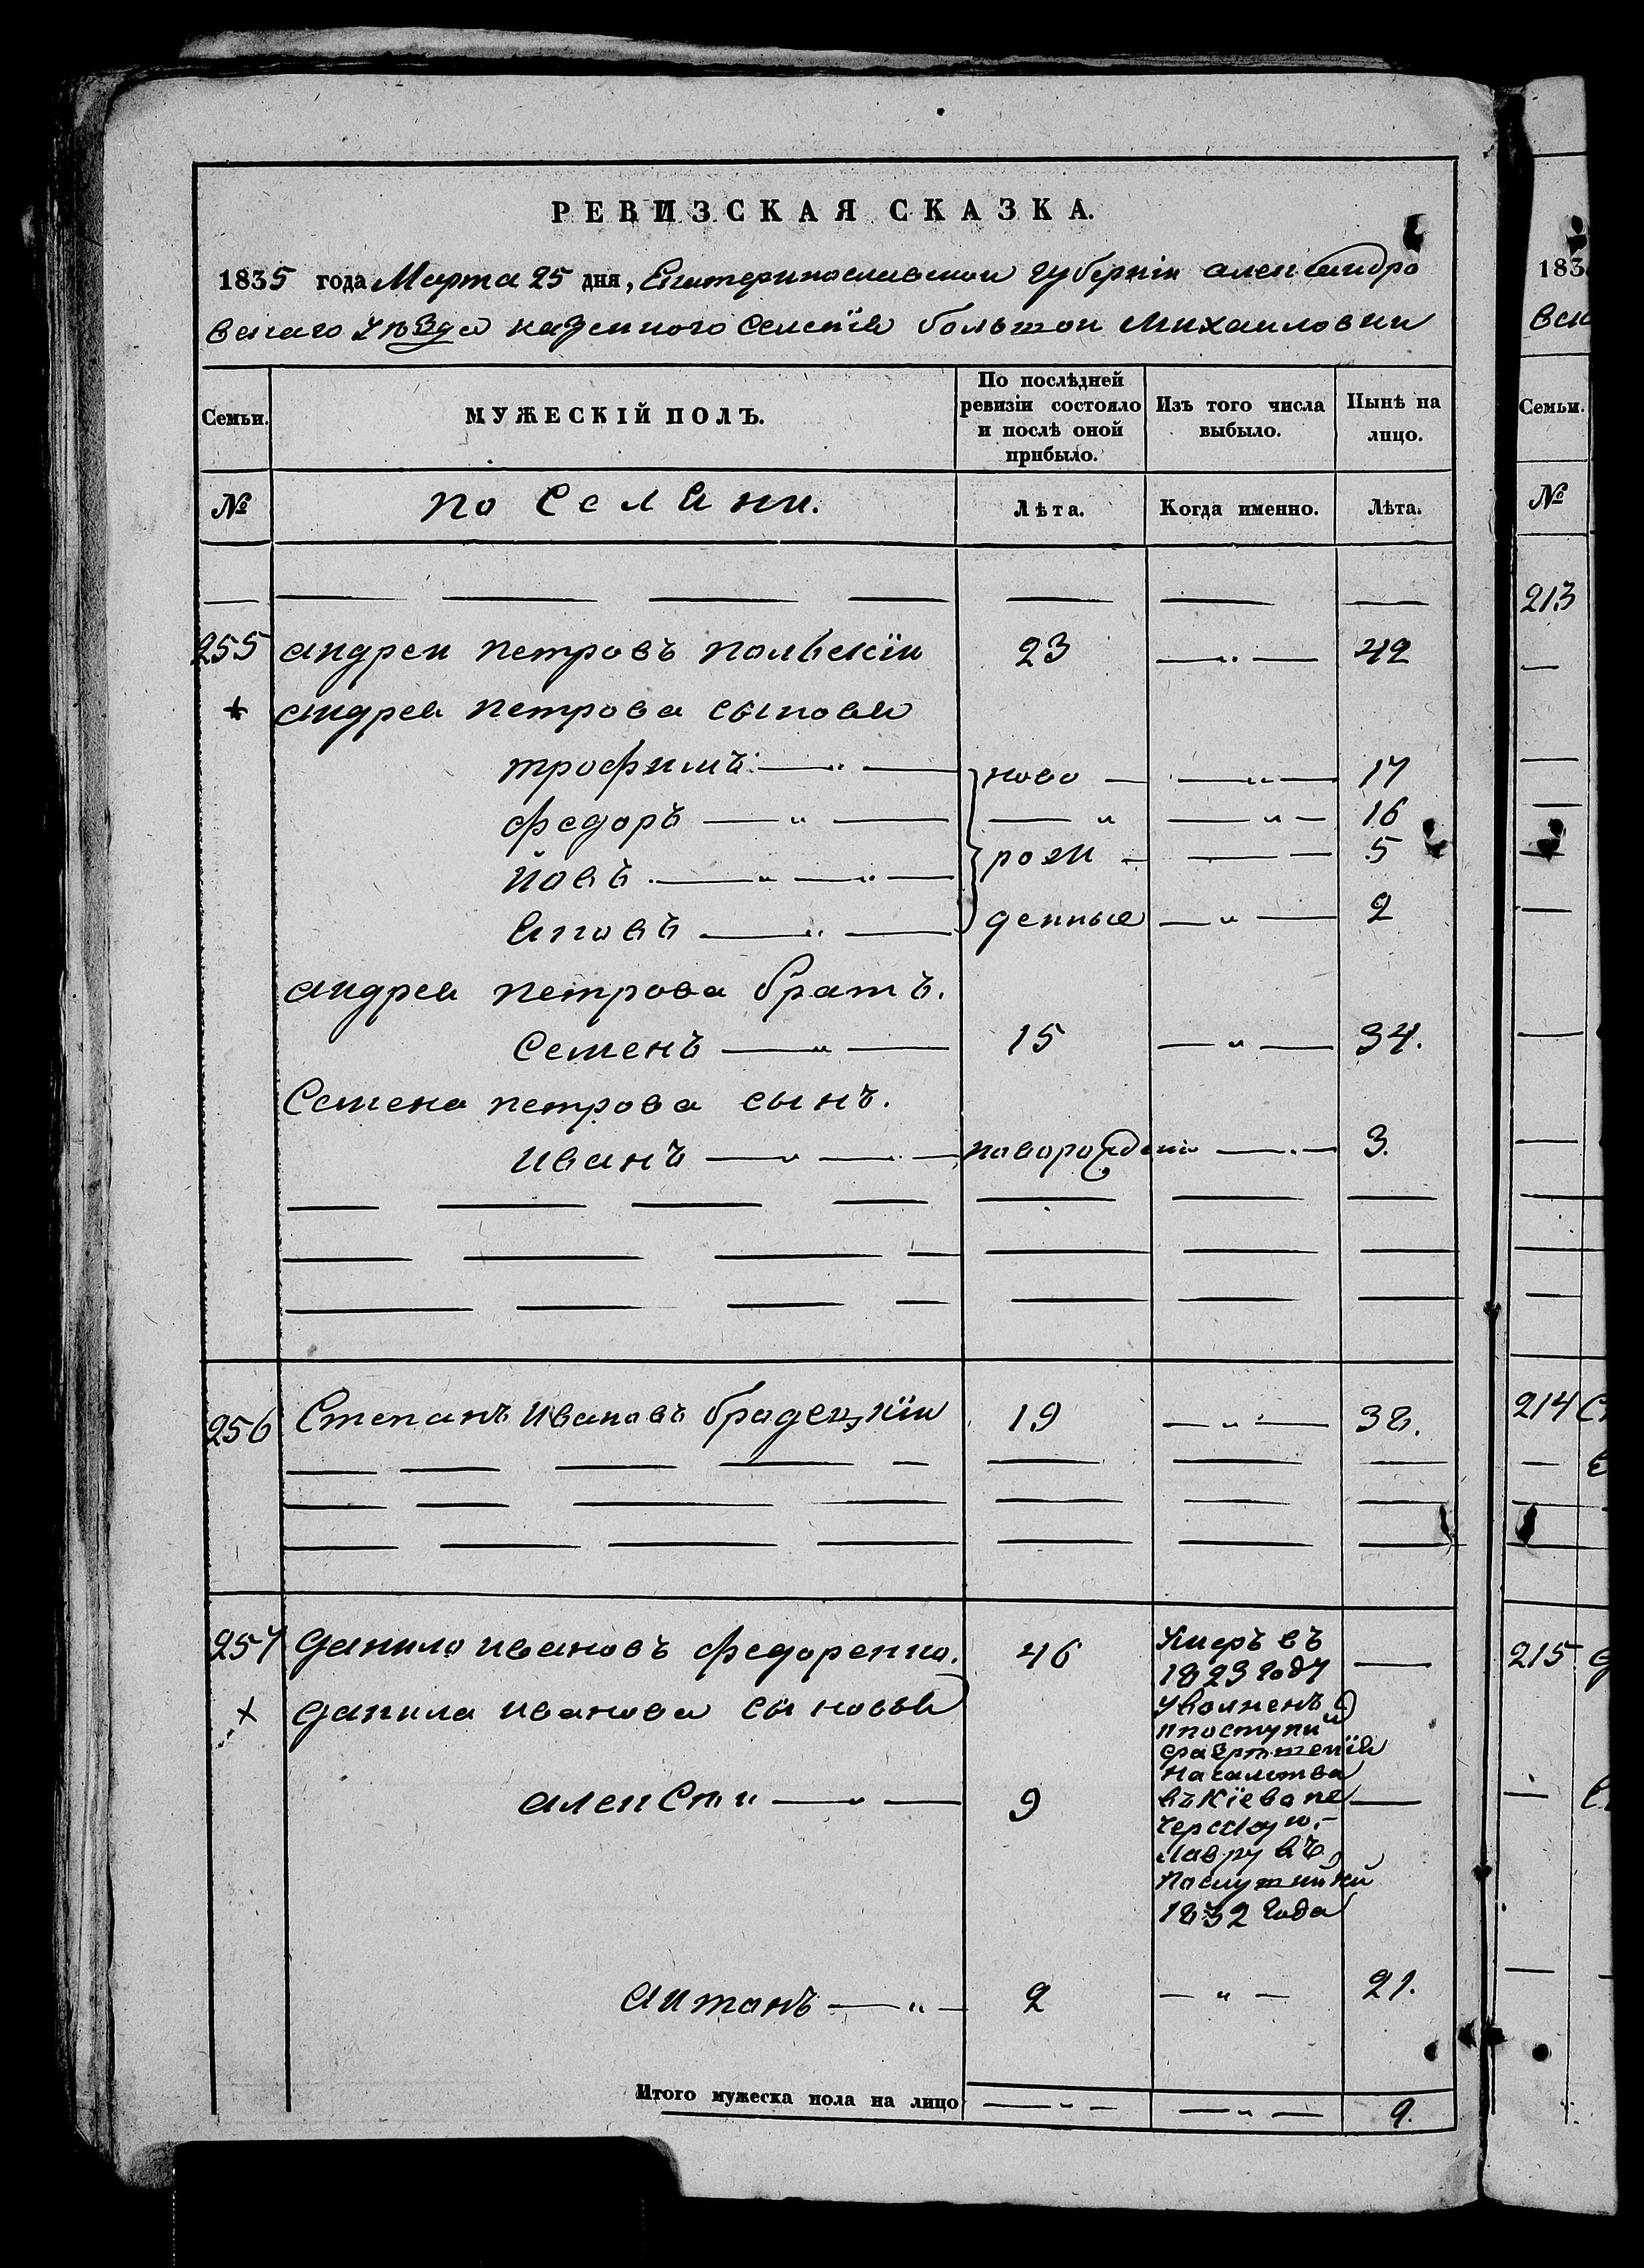 РЕВИЗСКАЯ СКАЗКА.
1835 года Марта 25 дня, Екатеринославской губернïи александро
вскаго уѣзда казенного селенïя большой михайловки
Семьи. МУЖЕСКІЙ ПОЛЪ. По послѣдней ревизіи состояло и послѣ оной прибыло. Изъ того числа выбыло. Нынѣ на лицо.
№ по селянни. Лѣта. Когда именно. Лѣта.
255 андреи петровъ польскïи 23 42
+ андрея петрова сыновя
трофимъ ново 17
федоръ 16
йовъ рож 5
яковъ денные 2
андрея петрова братъ.
Семенъ 15 34.
Семена петрова сынъ.
иванъ 3.
256 Степанъ ивановъ брадецкïи 19 38.
257 данило ивановъ федоренко. 46 Умеръ въ
1823 году
+ данила иванова сыновья
уволненъ
и поступи
с разрешенïя
началства
алексѣи 9 въ Кïево пе
черскую
лавру въ
послушники
1832 года
антонъ 2 21.
Итого мужеска пола на лицо 9.
183
вск
Семьи.
№
213
214 С
215